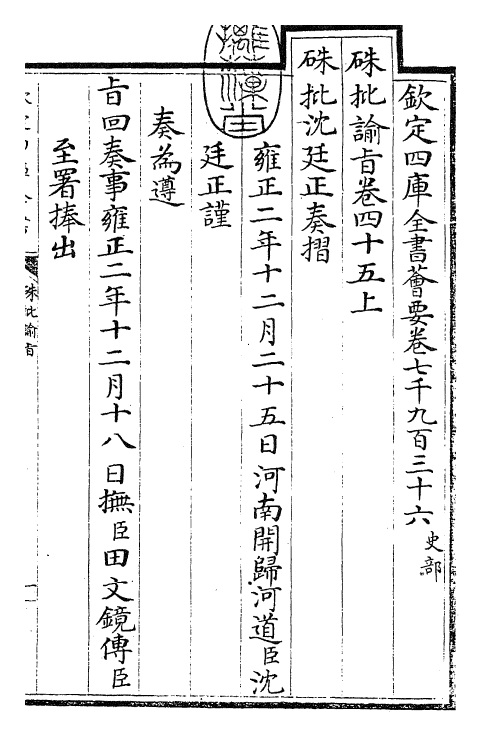 欽定四庫全書薈要卷七千九百三十六 史部
硃批諭旨卷四十五上
硃批沈廷正奏摺
雍正二年十二月二十五日河南開歸河道臣沈
廷正謹
奏為遵
旨回奏事雍正二年十二月十八日撫臣田文鏡傳臣
至署捧出
硃批諭旨
一